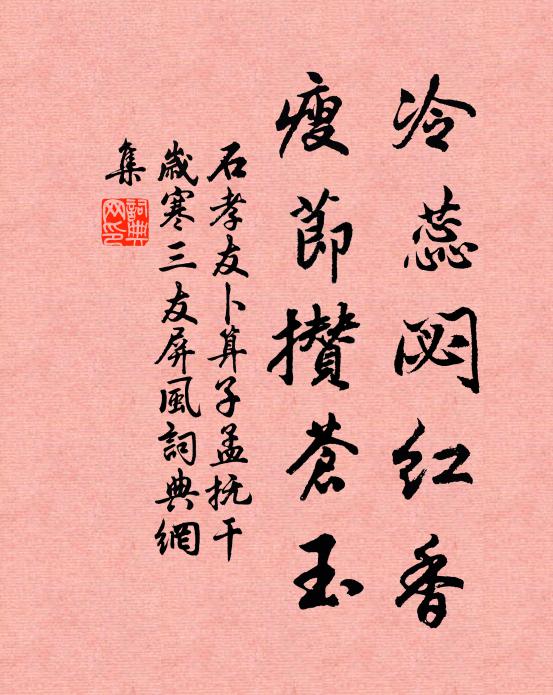 冷蕊閟紅香
瘦節攢蒼玉
石孝友卜算子孟抚干
歲寒三友屏風詞典網
集
詞典
网印